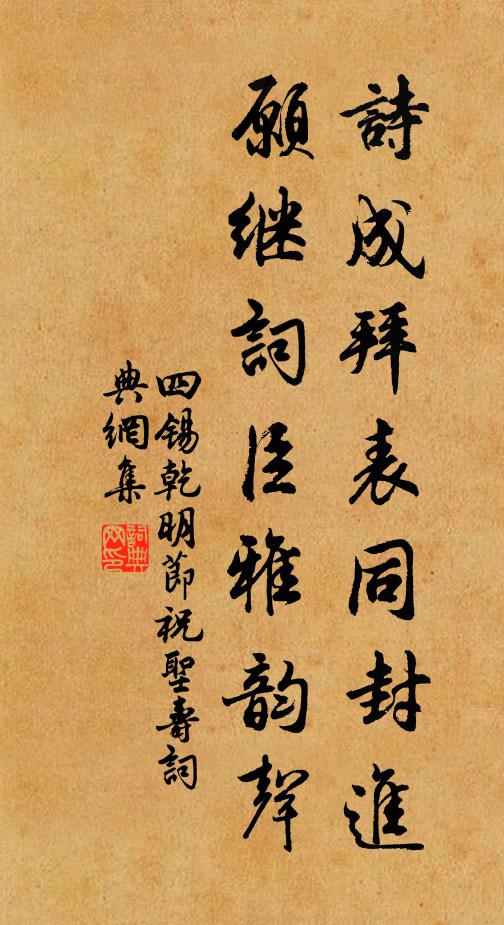 詩成拜表同封進
願继詞臣雅韵聲
四锡乾明節祝聖壽詞
典網集
詞典
网印